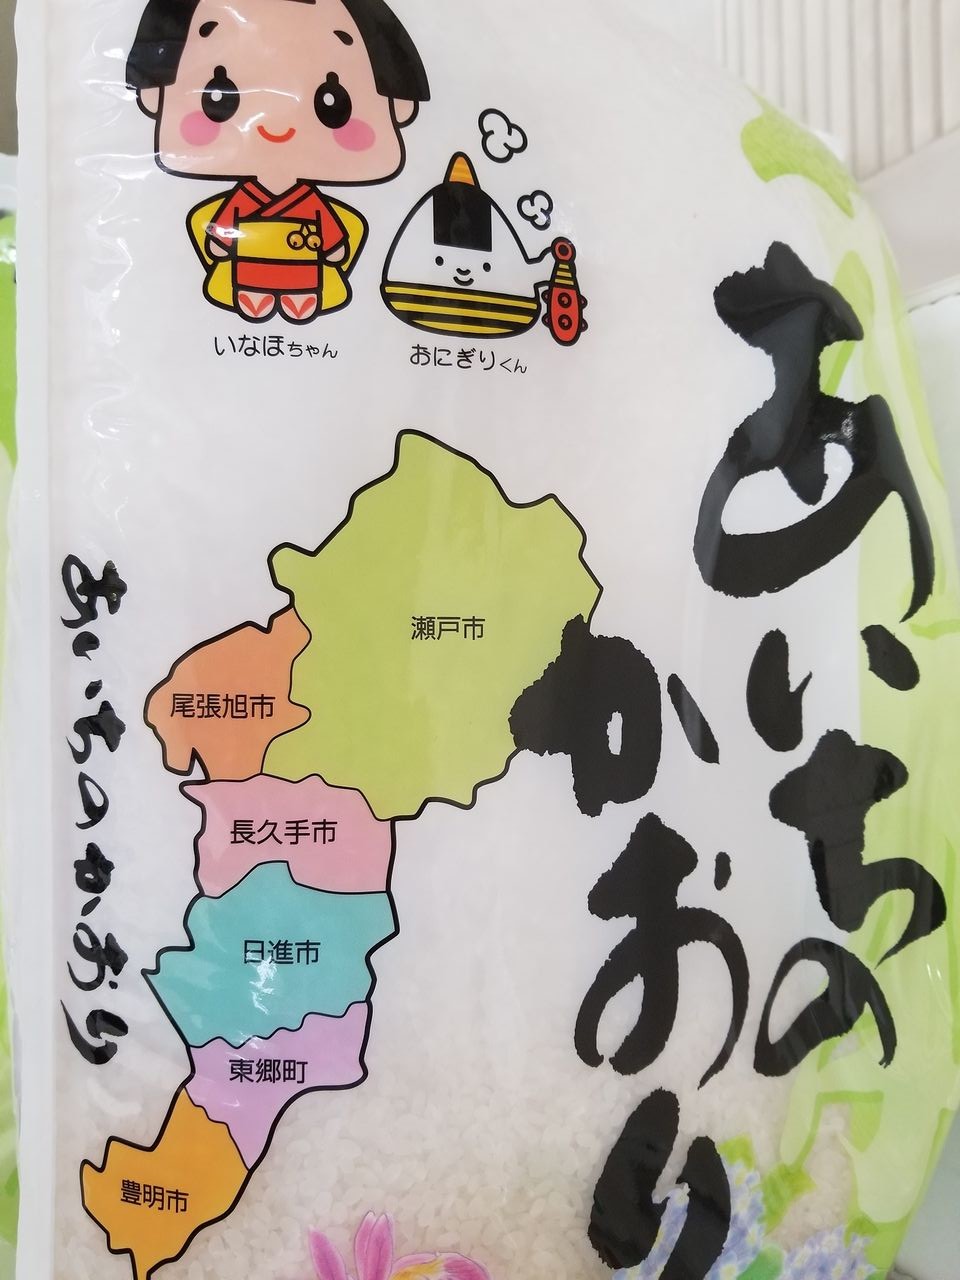 いなほちゃん
おにぎりくん
あいちの
かおり
瀬戸市
尾張旭市
長久手市
日進市
東郷町
豊明市
あいちのかおり